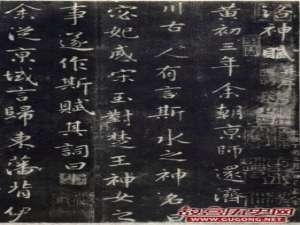 洛神賦
黄初三年余朝京師還濟
川古人有言斯水之神名曰
宓妃感宋玉對楚王神女之
事遂作斯賦其詞曰
余從京域言歸東藩背伊
故宫历史网
WWW.GUGONG.NET